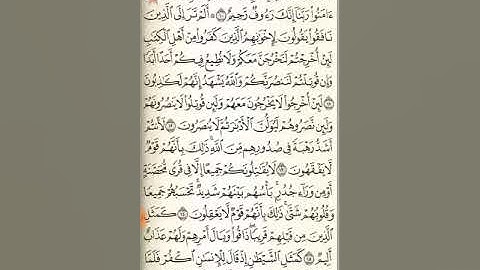 ءَامَنُوا۟ رَبَّنَآ إِنَّكَ رَءُوفٌ رَّحِيمٌ ۝١٠ ۞ أَلَمْ تَرَ إِلَى ٱلَّذِينَ
نَافَقُوا۟ يَقُولُونَ لِإِخْوَٰنِهِمُ ٱلَّذِينَ كَفَرُوا۟ مِنْ أَهْلِ ٱلْكِتَٰبِ
لَئِنْ أُخْرِجْتُمْ لَنَخْرُجَنَّ مَعَكُمْ وَلَا نُطِيعُ فِيكُمْ أَحَدًا أَبَدًا
وَإِن قُوتِلْتُمْ لَنَنصُرَنَّكُمْ وَٱللَّهُ يَشْهَدُ إِنَّهُمْ لَكَٰذِبُونَ
۝١١ لَئِنْ أُخْرِجُوا۟ لَا يَخْرُجُونَ مَعَهُمْ وَلَئِن قُوتِلُوا۟ لَا يَنصُرُونَهُمْ
وَلَئِن نَّصَرُوهُمْ لَيُوَلُّنَّ ٱلْأَدْبَٰرَ ثُمَّ لَا يُنصَرُونَ ۝١٢ لَأَنتُمْ
أَشَدُّ رَهْبَةً فِى صُدُورِهِم مِّنَ ٱللَّهِ ۚ ذَٰلِكَ بِأَنَّهُمْ قَوْمٌ
لَّا يَفْقَهُونَ ۝١٣ لَا يُقَٰتِلُونَكُمْ جَمِيعًا إِلَّا فِى قُرًى مُّحَصَّنَةٍ
أَوْ مِن وَرَآءِ جُدُرٍۭ ۚ بَأْسُهُم بَيْنَهُمْ شَدِيدٌ ۚ تَحْسَبُهُمْ جَمِيعًا
وَقُلُوبُهُمْ شَتَّىٰ ۚ ذَٰلِكَ بِأَنَّهُمْ قَوْمٌ لَّا يَعْقِلُونَ ۝١٤ كَمَثَلِ
ٱلَّذِينَ مِن قَبْلِهِمْ قَرِيبًا ۖ ذَاقُوا۟ وَبَالَ أَمْرِهِمْ وَلَهُمْ عَذَابٌ
أَلِيمٌ ۝١٥ كَمَثَلِ ٱلشَّيْطَٰنِ إِذْ قَالَ لِلْإِنسَٰنِ ٱكْفُرْ فَلَمَّا